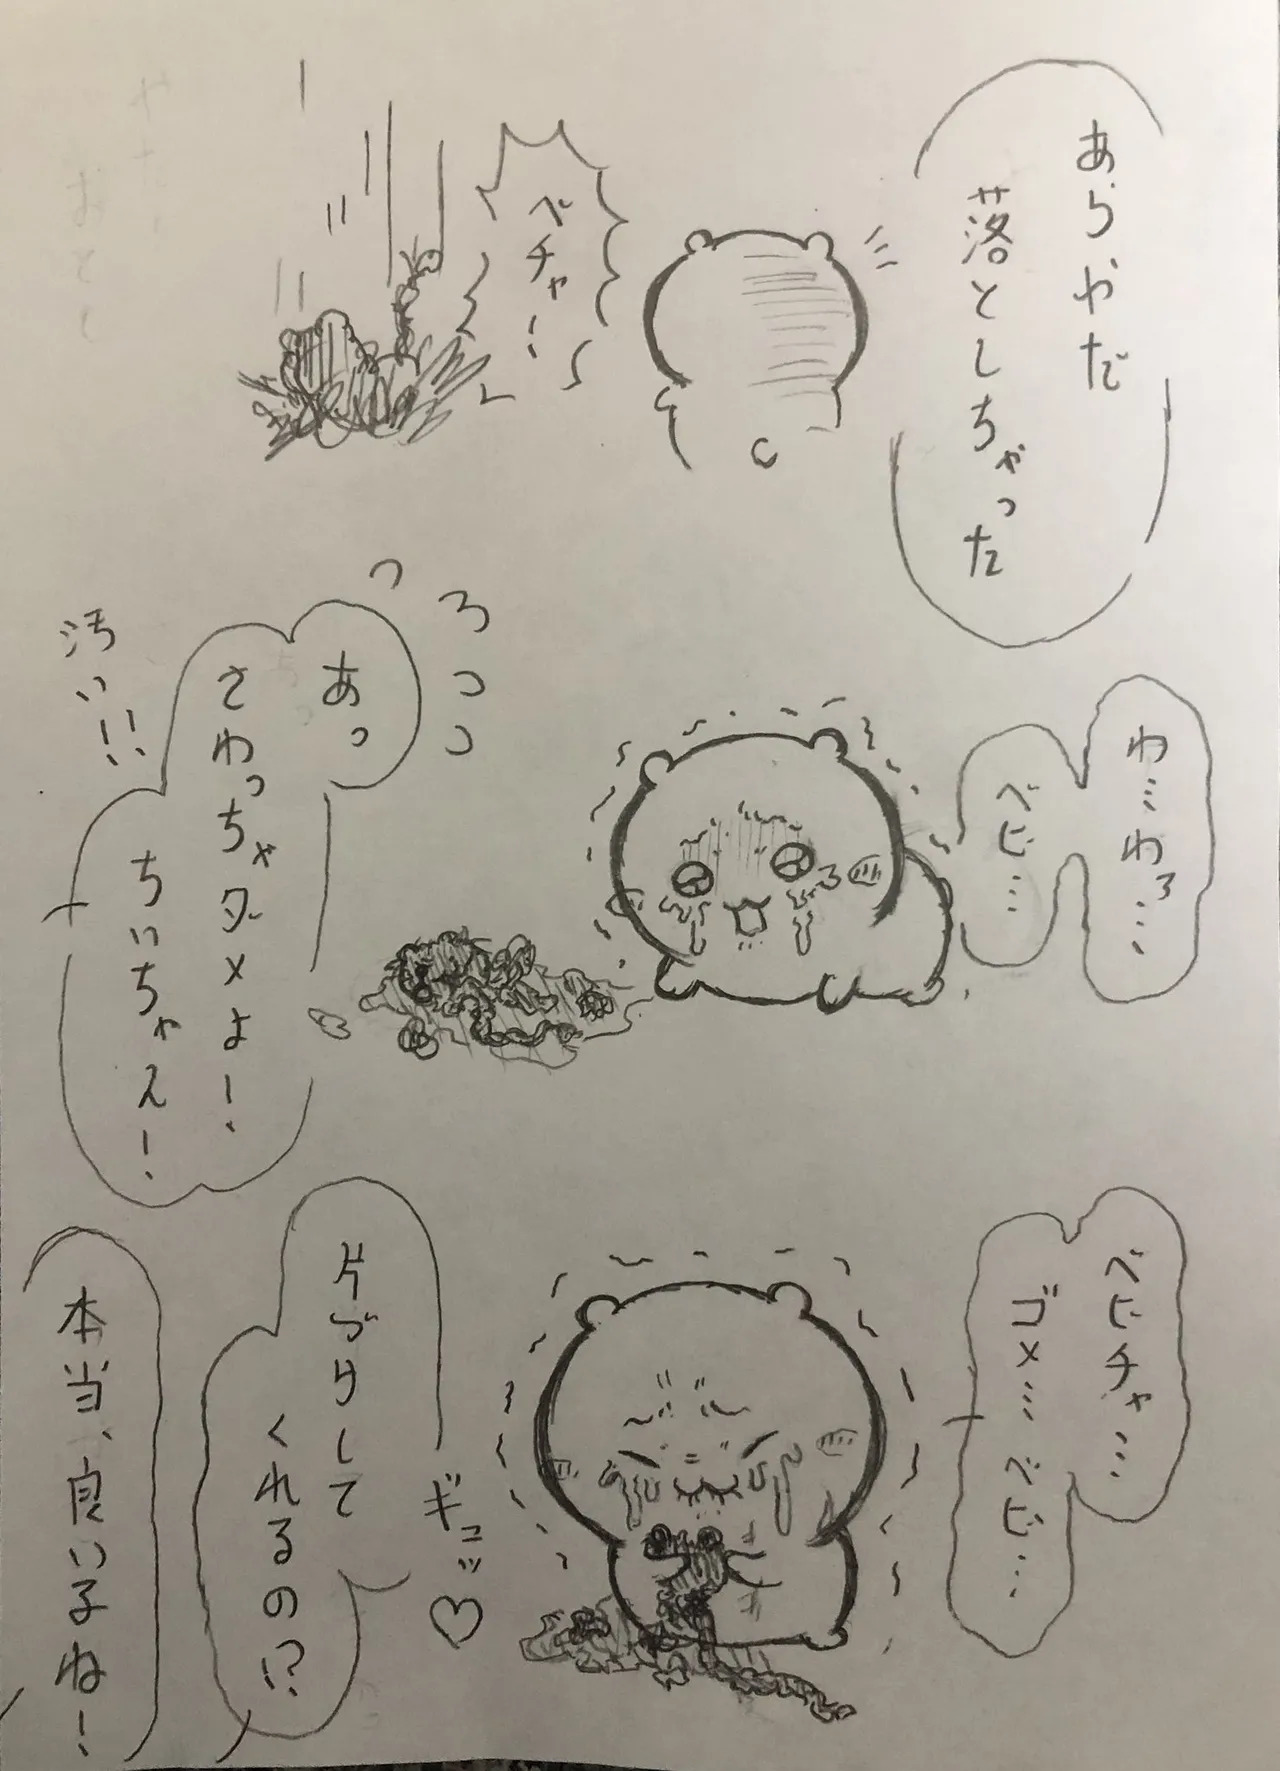 あらやだ
落としちゃった
ベチャー
わ…わァ…
ベビ…
つろつつ
あっ
さわっちゃダメよー
ちいちゃえー
汚い!!
ベビチャ…
ゴメ…ベビ…
ギュッ♡
片づけして
くれるの!?
本当、良い子ね!